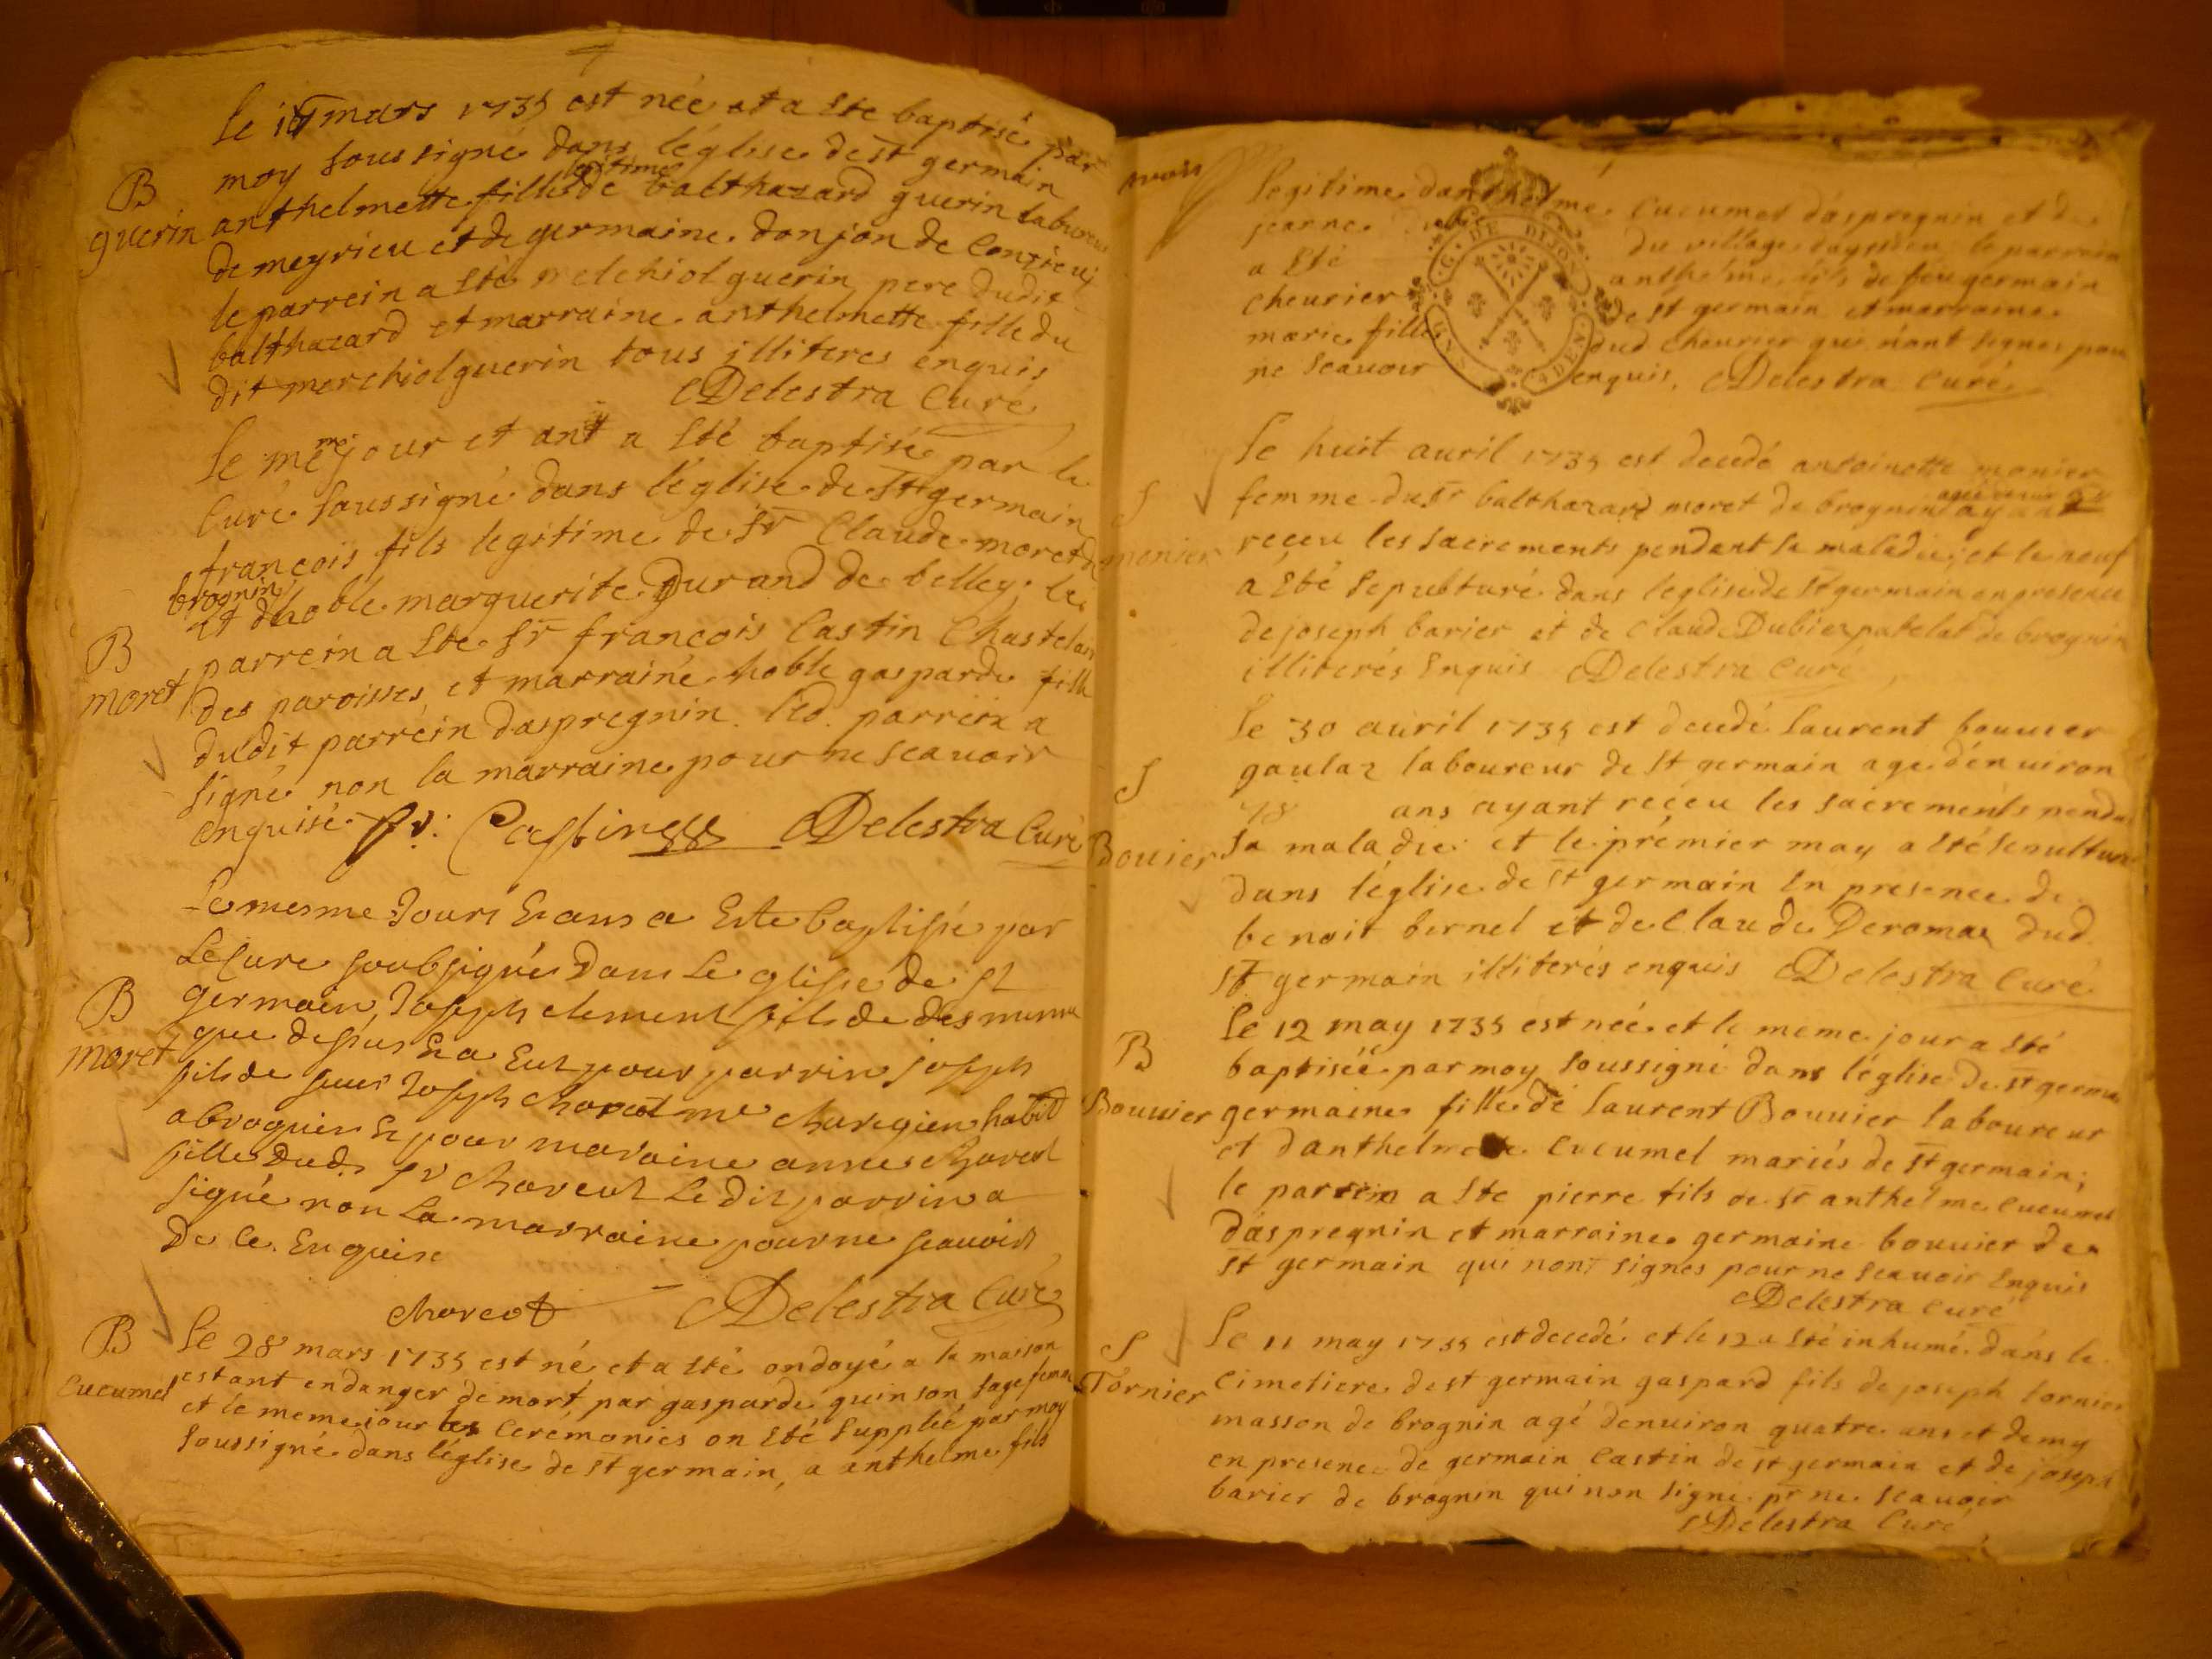 Le mars 1735 est née et a Eté baptisé par
moy soussigné dans léglise de st germain
B
guerin
anthelmette fille legitime de balthazard guerin laboureur
de meyrieu et de germaine donjon de Contrevi
le parrein a Eté melchiol guerin pere dudit
balthazard et marraine anthelmette fille du
dit merchiol guerin tous illiteres enquis
Delestra Curé
Le meme jour et an a Eté baptisé par le
Curé soussigné dans léglise de st germain
francois fils legitime de Sr Claude moret de
brognin
et de noble marguerite Durand de belley; le
B
moret
parrein a Ete Sr francois Castin Chastelain
des paroisses, et marraine noble gasparde fille
dudit parrein daspregnin. led. parrein a
signé non la marraine pour ne scauoir
enquise. fr: Castin Delestra Curé
Le mesme Jour Et an a Este baptisé par
Le Cure soubsigné Dans Leglise de st
B
moret
germain, Joseph clement fils de des mesme
que dessus Et a Eut pour parrin joseph
fils de sieur Joseph Chovcot me Chirugien habit
a brognin Et pour maraine anne Chovcot
fille Dud. sr Chovcot Le dit parrin a
signé non La marraine pour ne scauoir
De Ce Enquise
Chovcot Delestra Curé
B
Cucumel
Le 28 mars 1735 est né et a Eté ondoyé a la maison
estant en danger de mort, par gasparde guinson sagefemme
et le meme jour les Ceremonies on Eté Supplié par moy
soussigné dans léglise de st germain, a anthelme fils
legitime danthelme Cucumel daspregnin et de
jeanne du village dayssieu le parrein
a Eté anthelme fils de feu germain
cheurier de st germain et marraine
marie fille dud cheurier qui nont signes pour
ne Scauoir enquis. Delestra Curé
G. DE DIJON
Le huit auril 1735 est decedé antoinette monier
S
monier
femme du sr balthazard moret de brognin ayant
reçeu les sacrements pendant sa maladie; et le neuf
a Eté sepulturé dans leglise de st germain en presence
de joseph barier et de Claude Dubier patelat de brognin
illiterés Enquis Delestra Curé
Le 30 auril 1735 est decedé laurent bouuier
S
Bouier
gaulaz laboureur de st germain age denuiron
78 ans ayant reçeu les sacrements penda
sa maladie et le premier may a Eté sepulturé
dans léglise de st germain En presence de
benoit bernel et de Claude Deromaz dud
st germain illiterés enquis Delestra Curé
Le 12 may 1735 est née et le meme jour a Eté
B
Bouuier
baptisée par moy soussigné dans léglise de st germa
germaine fille de laurent Bouuier laboureur
et danthelmette Cucumel mariés de st germain;
le parrein a Ete pierre fils de sr anthelme Cucumel
daspregnin et marraine germaine bouuier de
st germain qui nont signés pour ne scauoir Enquis
Delestra Curé
S
Tornier
Le 11 may 1735 est decedé et le 12 a Eté inhumé dans le
Cimetiere de st germain gaspard fils de joseph tornier
masson de brognin agé denuiron quatre ans et demy
en presence de germain Castin de st germain et de joseph
barier de brognin qui non signé pr ne scauoir
Delestra Curé